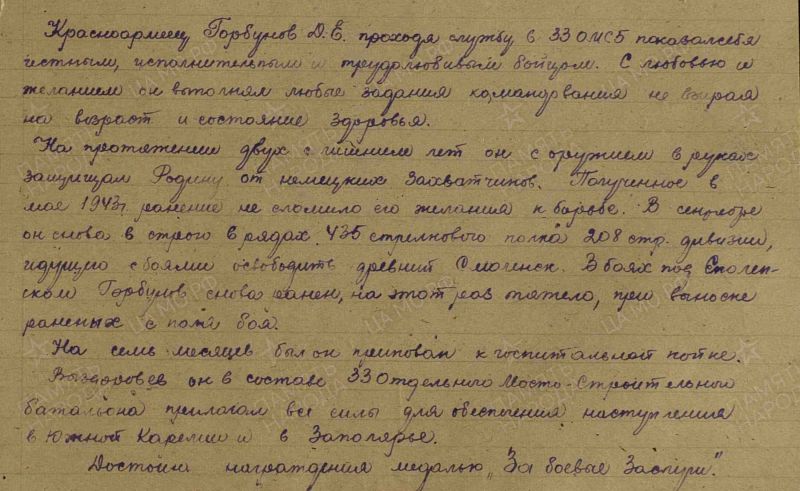 Красноармеец Горбунов Д.Е. проходя службу в 33 ОМСБ показал себя
честным, исполнительным и трудолюбивым бойцом. С любовью и
желанием он выполнял любые задания командования не взирая
на возраст и состояние здоровья.
На протяжении двух с лишним лет он с оружием в руках
защищал Родину от немецких захватчиков. Полученное в
мае 1943г ранение не сломило его желания к борьбе. В сентябре
он снова в строю в рядах 435 стрелкового полка 208 стр. дивизии,
идущего с боями освободить древний Смоленск. В боях под Смолен-
ском Горбунов снова ранен, на этот раз тяжело, при выноске
раненых с поля боя.
На семь месяцев был он прикован к госпитальной койке.
Выздоровев он в составе 33 Отдельного Мосто-Строительного
батальона прилагал все силы для обеспечения наступления
в Южной Карелии и в Заполярье.
Достоин награждения медалью "За боевые Заслуги".